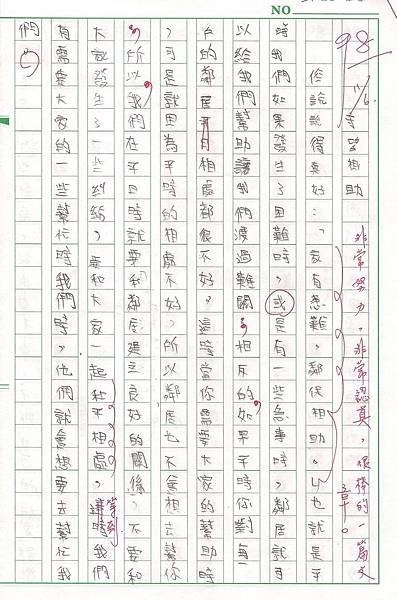 NO.
98 11/6
守望相助
非常努力，非常認真，很棒的一篇文章。
俗說說得真好：「家有患難，鄰保相助。」也就是平
時我們如果發生了困難時，或是有一些急事時，鄰居就可
以給我們幫助讓我們渡過難關，相反的，如果平時你對每
戶的鄰居 相處都很不好，這時當你需要大家的幫助時
，可是就因為平時的相處不好，所以鄰居也不會想去幫你
，所以我們在平日時就要和鄰居建立良好的關係，不要和
大家發生了一些糾紛，要和大家一起和平相處，等到 時我們
有需要大家的一些幫忙時我們時，他們就會想要去幫忙我
們。